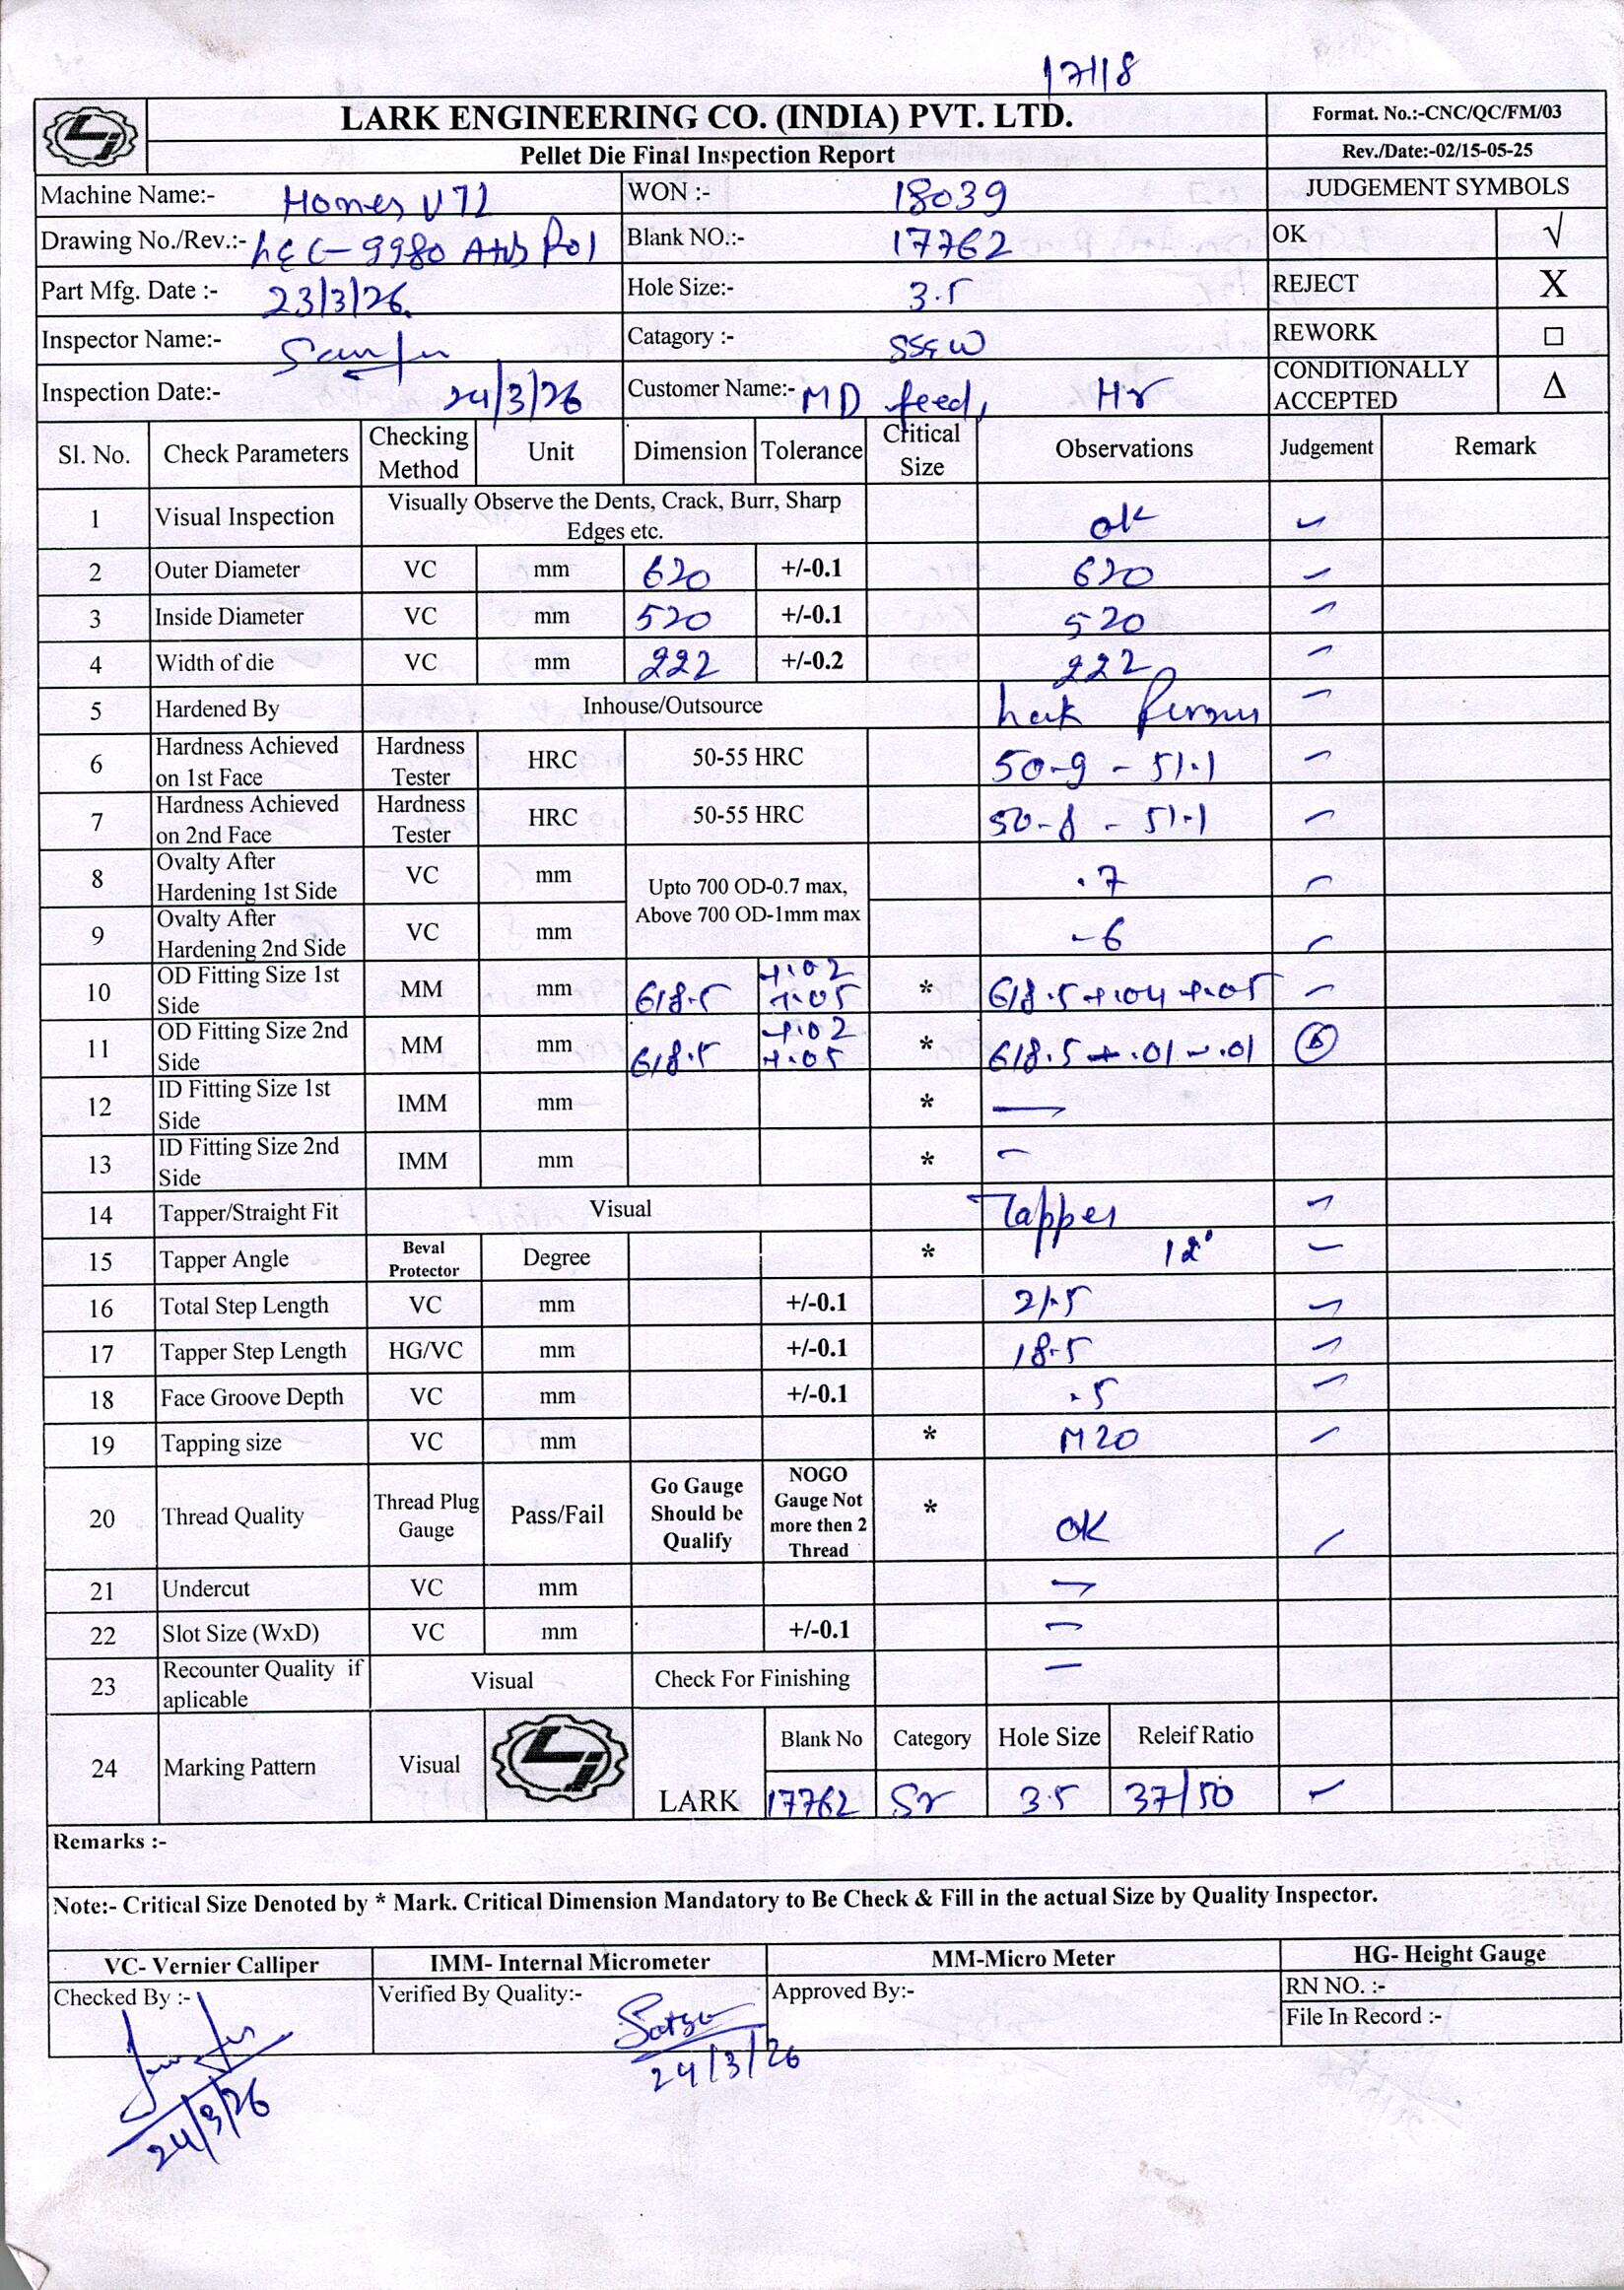 17118
LARK ENGINEERING CO. (INDIA) PVT. LTD.
Format. No.:-CNC/QC/FM/03
Pellet Die Final Inspection Report
Rev./Date:-02/15-05-25
Machine Name:- V72 WON :- 18039 JUDGEMENT SYMBOLS
Drawing No./Rev.:- 9980 Blank NO.:- 17762 OK √
Part Mfg. Date :- 23/3/26 Hole Size:- 3.5 REJECT X
Inspector Name:- Catagory :- REWORK □
Inspection Date:- 24/3/26 Customer Name:- MD feed, Hr CONDITIONALLY ACCEPTED Δ
Sl. No. Check Parameters Checking Method Unit Dimension Tolerance Critical Size Observations Judgement Remark
1 Visual Inspection Visually Observe the Dents, Crack, Burr, Sharp Edges etc. ok
2 Outer Diameter VC mm 620 +/-0.1 620
3 Inside Diameter VC mm 520 +/-0.1 520
4 Width of die VC mm 222 +/-0.2 222
5 Hardened By Inhouse/Outsource
6 Hardness Achieved on 1st Face Hardness Tester HRC 50-55 HRC 50-9 - 51.1
7 Hardness Achieved on 2nd Face Hardness Tester HRC 50-55 HRC 50-8 - 51.1
8 Ovalty After Hardening 1st Side VC mm Upto 700 OD-0.7 max, Above 700 OD-1mm max .7
9 Ovalty After Hardening 2nd Side VC mm -6
10 OD Fitting Size 1st Side MM mm 618.5 +.02 +.05 * 618.5 +.04 +.05
11 OD Fitting Size 2nd Side MM mm 618.5 +.02 +.05 * 618.5 +.01 -.01
12 ID Fitting Size 1st Side IMM mm * —
13 ID Fitting Size 2nd Side IMM mm * —
14 Tapper/Straight Fit Visual Tapper
15 Tapper Angle Beval Protector Degree * 12°
16 Total Step Length VC mm +/-0.1 21.5
17 Tapper Step Length HG/VC mm +/-0.1 18.5
18 Face Groove Depth VC mm +/-0.1 .5
19 Tapping size VC mm * M20
20 Thread Quality Thread Plug Gauge Pass/Fail Go Gauge Should be Qualify NOGO Gauge Not more then 2 Thread * OK
21 Undercut VC mm —
22 Slot Size (WxD) VC mm +/-0.1 —
23 Recounter Quality if aplicable Visual Check For Finishing —
24 Marking Pattern Visual LARK Blank No Category Hole Size Releif Ratio
17762 Sr 3.5 37/50
Remarks :-
Note:- Critical Size Denoted by * Mark. Critical Dimension Mandatory to Be Check & Fill in the actual Size by Quality Inspector.
VC- Vernier Calliper IMM- Internal Micrometer MM-Micro Meter HG- Height Gauge
Checked By :- Verified By Quality:- Approved By:- RN NO. :-
File In Record :-
24/3/26
24/3/26